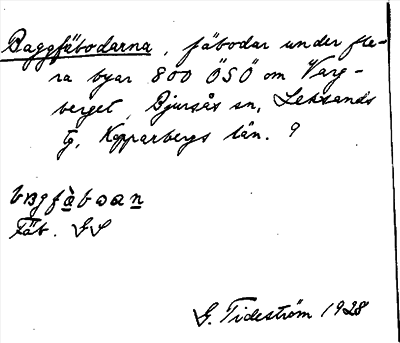 Baggfäbodarna, fäbodar under fle-
ra byar 800 ÖSÖ om Varg-
berget, Bjursås sn, Leksands
tg, Kopparbergs län. 9
bagfàboan
Fäb.
G. Tideström 1928